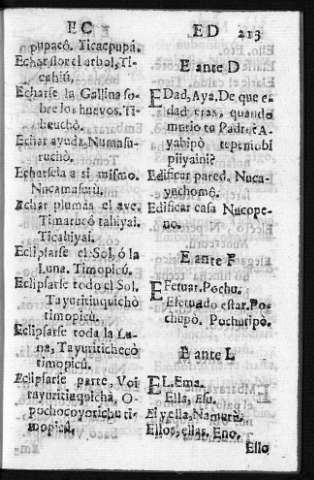 EC
ED 213
pupacô. Ticacpupâ.
Echar flor el arbol, Ti-
Echarse la Gallina so-
bre los huevos. Ti-
beuchò.
Echar ayuda, Numasu-
ruchò.
Echarsela a si mismo.
Nucamasurù.
Echar plumas el ave.
Timarucô tahiyai.
Ticahiyai.
Eclipsarse el Sol, ó la
Luna. Timopicù.
Eclipsarse todo el Sol.
Tayuritiuquichò
timopicù.
Eclipsarse toda la Lu-
na, Tayuritichecò
timopicù.
Eclipsarse parte, Voi
tayuritiuquicha, O-
pochocoyorichu ti-
mopicù.
E ante D
EDad, Aya. De que e-
dad eras, quando
murio tu Padre? A-
yahipò tepeniobi
piiyaini?
Edificar pared. Nuca-
yachomê.
Edificar casa Nucope-
no.
E ante F
EFetuar. Pochu.
Efetuado estar. Po-
chupò. Pochutipò.
E ante L
EL. Ema.
Ella, Esu.
El y ella, Namurù.
Ellos, ellas. Eno.
Ello